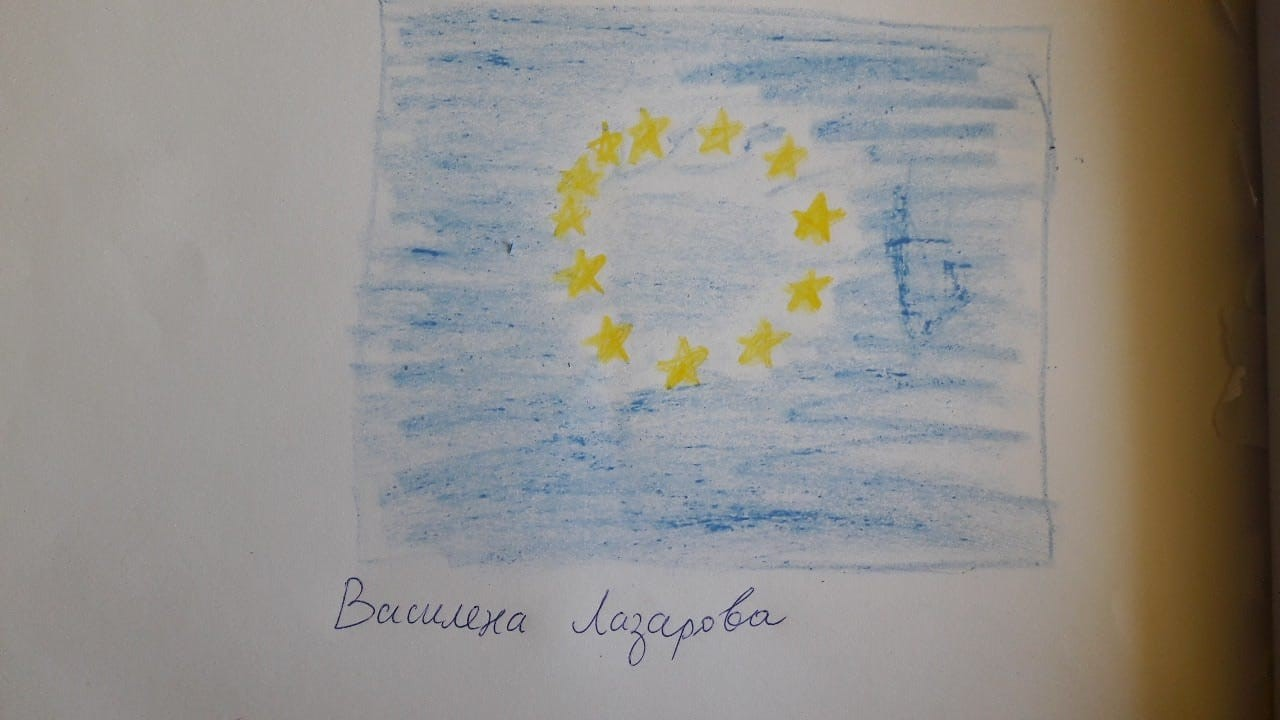 Василена Лазарова